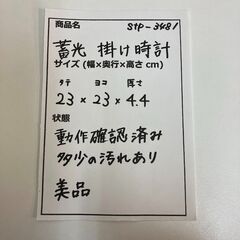 商品名 StP-3481
蓄光 掛け時計
サイズ (幅×奥行×高さ cm)
タテ ヨコ 厚さ
23 × 23 × 4.4
状態
動作確認済み
多少の汚れあり
美品